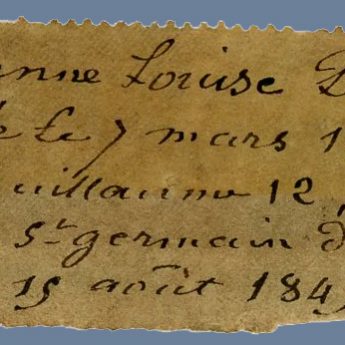 anne Louise D
le 7 mars 1
uillaume 12
St germain d
15 août 184